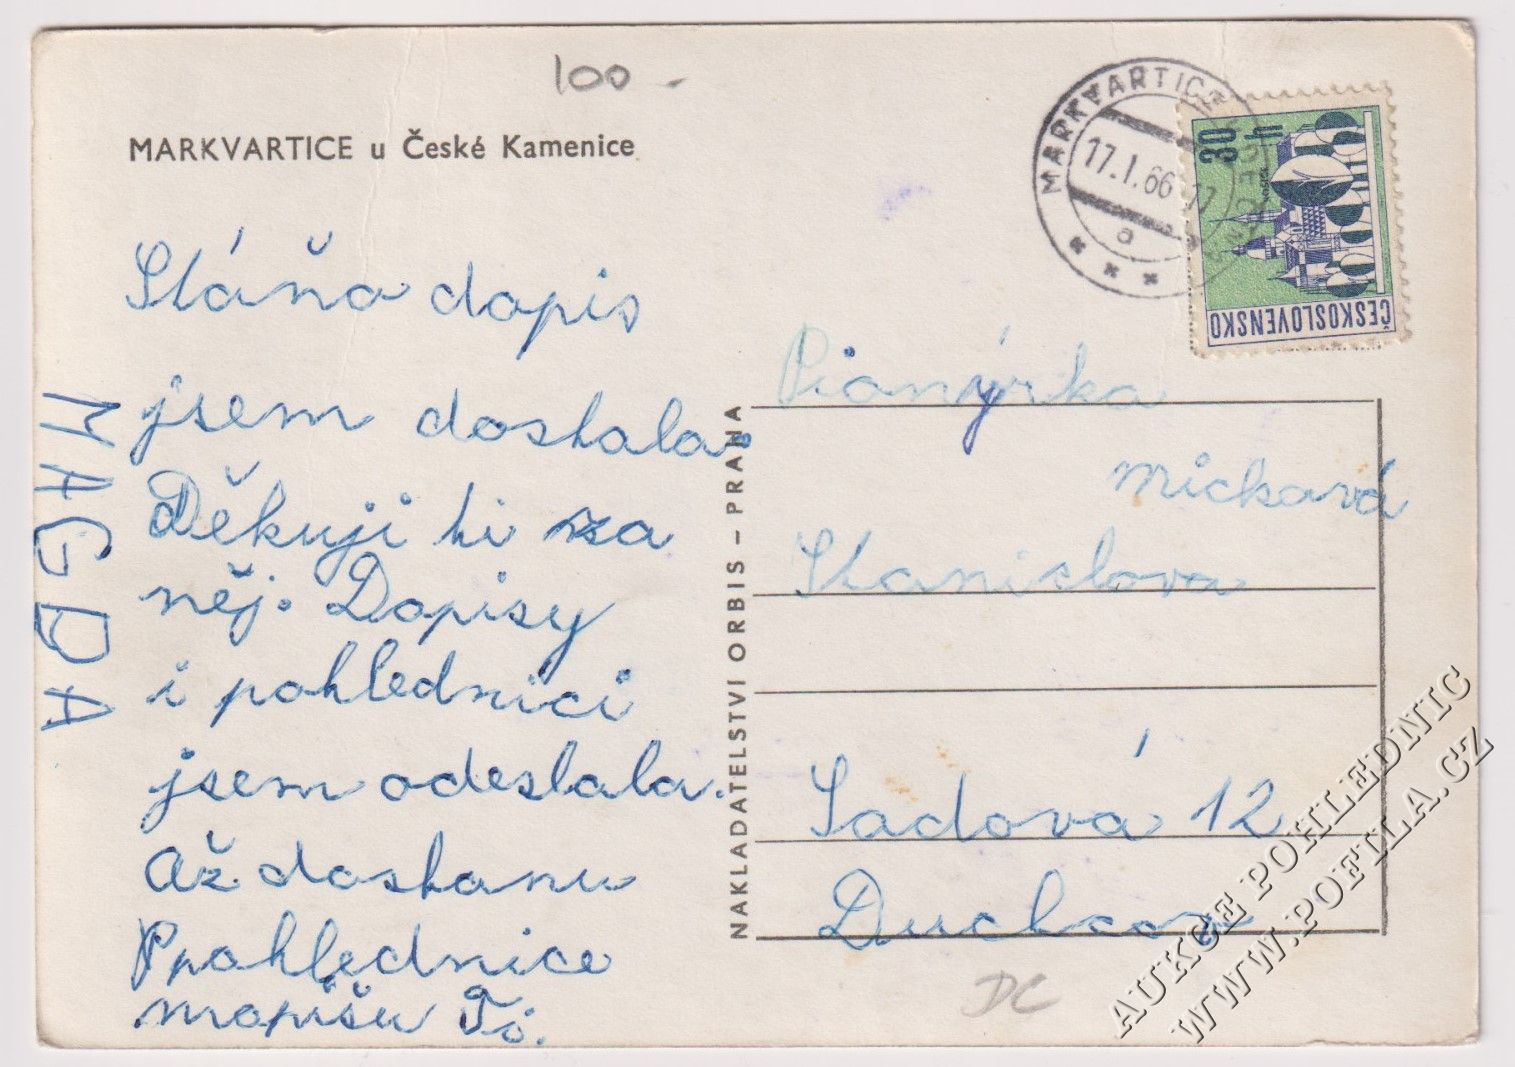 100 -
MARKVARTICE u České Kamenice
Stáňo dopis
jsem dostala.
Děkuji ti za
něj. Dopisy
i pohlednici
jsem odeslala.
Až dostanu
Pohlednice
napíšu Ti.
MAGDA
NAKLADATELSTVÍ ORBIS – PRAHA
MARKVARTICE
17.I.66
a
30
h
ČESKOSLOVENSKO
Pionýrka
Mickavá
Stanislava
Sadová 12
Duchcov
DC
AUKCE POHLEDNIC
WWW.POFILA.CZ